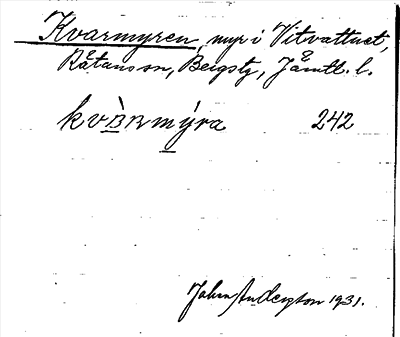 Kvarnmyren, myr i Vitvattnet,
Råtans sn, Bergsty, Jämtl. l.
kvànmýra 242
Johan Anderzton 1931.